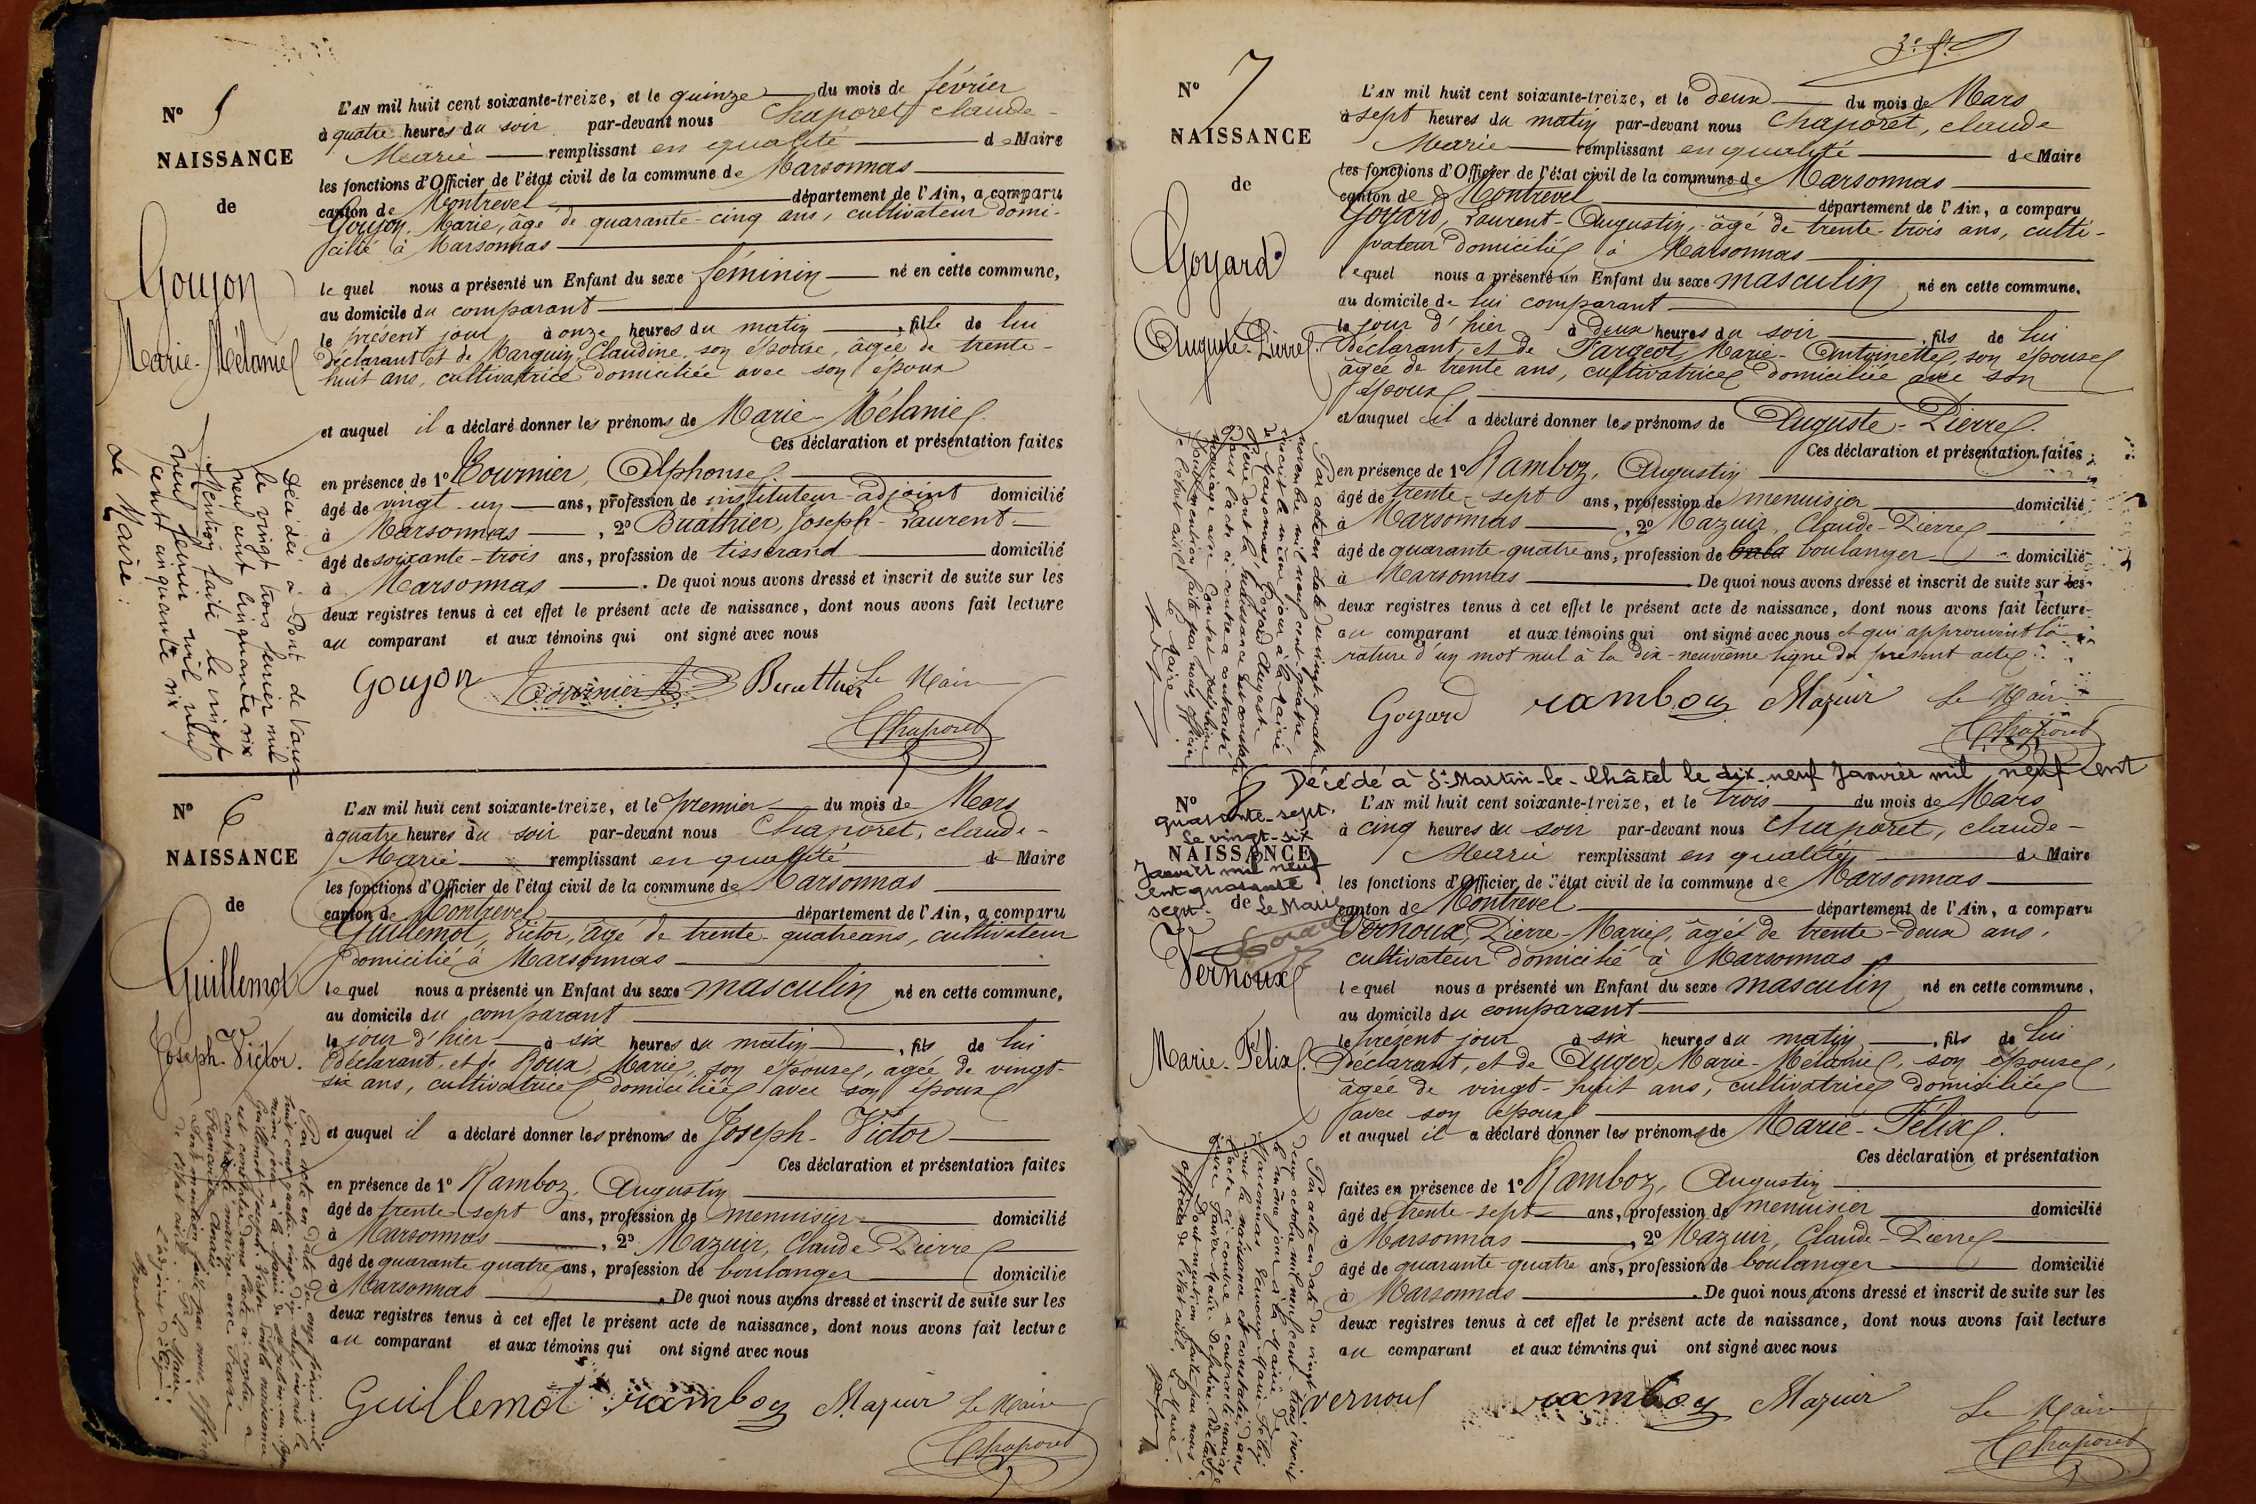 N° 5
NAISSANCE
de
Goujon
Marie-Mélanie
L'AN mil huit cent soixante-treize, et le quinze du mois de février
à quatre heures du soir par-devant nous Chaporet Claude-
Marie remplissant en qualité de Maire
les fonctions d'Officier de l'état civil de la commune de Marsonnas
canton de Montrevel département de l'Ain, a comparu
Goujon, Marie, âgé de quarante-cinq ans, cultivateur domi-
cilié à Marsonnas
lequel nous a présenté un Enfant du sexe féminin né en cette commune,
au domicile du comparant
le présent jour à onze heures du matin, fille de lui
déclarant et de Marquin, Claudine, son épouse, âgée de trente-
huit ans, cultivatrice domiciliée avec son époux
et auquel il a déclaré donner les prénoms de Marie-Mélanie.
Ces déclaration et présentation faites
en présence de 1° Tournier, Alphonse
âgé de vingt-un ans, profession de instituteur-adjoint domicilié
à Marsonnas, 2° Buathier, Joseph-Laurent
âgé de soixante-trois ans, profession de tisserand domicilié
à Marsonnas. De quoi nous avons dressé et inscrit de suite sur les
deux registres tenus à cet effet le présent acte de naissance, dont nous avons fait lecture
au comparant et aux témoins qui ont signé avec nous
Goujon Tournier A. Buathier Le Maire
Chaporet
Décédée à Pont de Vaux
le vingt trois février mil
neuf cent cinquante six
Mention faite le vingt
neuf février mil neuf
cent cinquante six
Le Maire :
N° 6
NAISSANCE
de
Guillemot
Joseph-Victor.
L'AN mil huit cent soixante-treize, et le premier du mois de Mars
à quatre heures du soir par-devant nous Chaporet, Claude-
Marie remplissant en qualité de Maire
les fonctions d'Officier de l'état civil de la commune de Marsonnas
canton de Montrevel département de l'Ain, a comparu
Guillemot, Victor, âgé de trente-quatre ans, cultivateur
domicilié à Marsonnas
lequel nous a présenté un Enfant du sexe masculin né en cette commune,
au domicile du comparant
le jour d'hier à six heures du matin, fils de lui
déclarant, et de Roux, Marie, son épouse, agée de vingt-
six ans, cultivatrice domiciliée avec son époux
et auquel il a déclaré donner les prénoms de Joseph-Victor
Ces déclaration et présentation faites
en présence de 1° Ramboz, Augustin
âgé de trente-sept ans, profession de menuisier domicilié
à Marsonnas, 2° Mazuir, Claude-Pierre
âgé de quarante-quatre ans, profession de boulanger domicilié
à Marsonnas. De quoi nous avons dressé et inscrit de suite sur les
deux registres tenus à cet effet le présent acte de naissance, dont nous avons fait lecture
au comparant et aux témoins qui ont signé avec nous
Guillemot ramboz Mazuir Le Maire
Chaporet
Par acte en date du onze février mil
N° 7
NAISSANCE
de
Goyard
Auguste-Pierre.
L'AN mil huit cent soixante-treize, et le deux du mois de Mars
à sept heures du matin par-devant nous Chaporet, Claude
Marie remplissant en qualité de Maire
les fonctions d'Officier de l'état civil de la commune de Marsonnas
canton de Montrevel département de l'Ain, a comparu
Goyard, Laurent-Augustin, âgé de trente-trois ans, culti-
vateur domicilié à Marsonnas
lequel nous a présenté un Enfant du sexe masculin né en cette commune,
au domicile de lui comparant
le jour d'hier à deux heures du soir, fils de lui
déclarant, et de Fargeot, Marie-Antoinette, son épouse
âgée de trente ans, cultivatrice domiciliée avec son
époux
et auquel il a déclaré donner les prénoms de Auguste-Pierre.
Ces déclaration et présentation faites
en présence de 1° Ramboz, Augustin
âgé de trente-sept ans, profession de menuisier domicilié
à Marsonnas, 2° Mazuir, Claude-Pierre
âgé de quarante-quatre ans, profession de bala boulanger domicilié
à Marsonnas. De quoi nous avons dressé et inscrit de suite sur les
deux registres tenus à cet effet le présent acte de naissance, dont nous avons fait lecture
au comparant et aux témoins qui ont signé avec nous et qui approuvent la
rature d'un mot nul à la dix-neuvième ligne du présent acte.
Goyard ramboz Mazuir Le Maire
Chaporet
Décédé à St Martin-le-Châtel le dix-neuf Janvier mil neuf cent
quarante-sept.
Le vingt-six
Janvier mil neuf
cent quarante
sept. Le Maire
N° 8
NAISSANCE
de
Vernoux
Marie-Félix.
L'AN mil huit cent soixante-treize, et le trois du mois de Mars
à cinq heures du soir par-devant nous Chaporet, Claude-
Marie remplissant en qualité de Maire
les fonctions d'Officier de l'état civil de la commune de Marsonnas
canton de Montrevel département de l'Ain, a comparu
Vernoux, Pierre-Marie, âgé de trente-deux ans,
cultivateur domicilié à Marsonnas
lequel nous a présenté un Enfant du sexe masculin né en cette commune,
au domicile du comparant
le présent jour à six heures du matin, fils de lui
Déclarant, et de Auger, Marie-Mélanie, son épouse,
âgée de vingt-huit ans, cultivatrice domiciliée
avec son époux
et auquel il a déclaré donner les prénoms de Marie-Félix.
Ces déclaration et présentation
faites en présence de 1° Ramboz, Augustin
âgé de trente-sept ans, profession de menuisier domicilié
à Marsonnas, 2° Mazuir, Claude-Pierre
âgé de quarante-quatre ans, profession de boulanger domicilié
à Marsonnas. De quoi nous avons dressé et inscrit de suite sur les
deux registres tenus à cet effet le présent acte de naissance, dont nous avons fait lecture
au comparant et aux témoins qui ont signé avec nous
vernoux ramboz Mazuir Le Maire
Chaporet